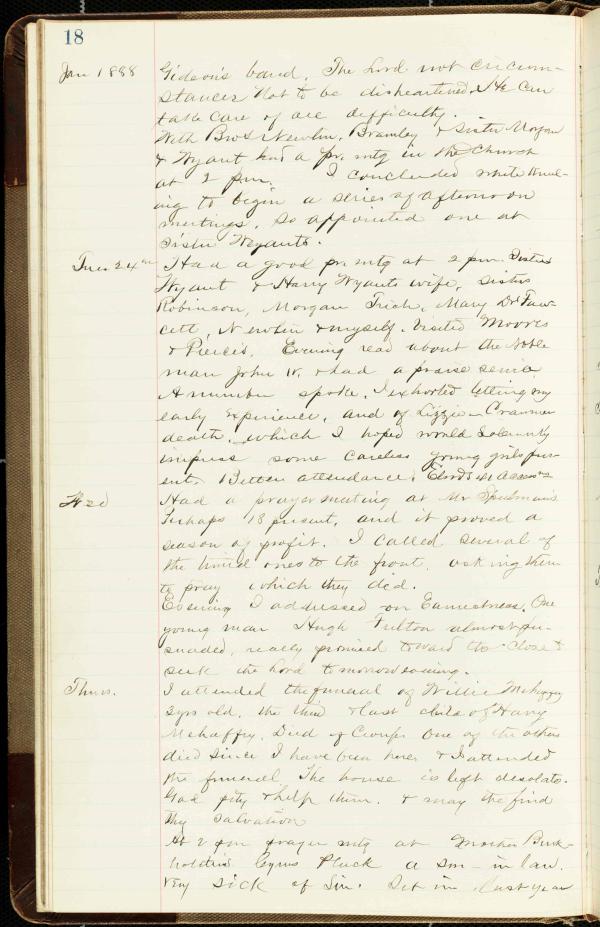 18
Jan 1888 Gideon's band. The Lord not circum-
stances Not to be disheartened. He can
take care of all difficulty.
With Bros Newlin, Bramley & Sister Morgan
& Wyant had a pr. mtg in the Church
at 2 p.m. I concluded while
ing to begin a series of afternoon
meetings. So appointed one at
Sister Weyants.
Tues 24th Had a good pr mtg at 2 pm. Sisters
Wyant & Harry Wyants wife, Sisters
Robinson, Morgan Mary Faw-
cett, Newlin & myself. Visited Moores
& Pierces. Evening read about the Noble
man John IV. & had a praise service
A number spoke. I exhorted telling my
early experience, and of Lizzie
death, which I hoped would solemnly
impress some careless young girls pre-
sent. Better attendance.
Wed Had a prayer meeting at Mr
Perhaps 18 present, and it proved a
season of profit. I called several of
the timid ones to the front, asking them
to pray which they did.
Evening I addressed on Earnestness. One
young man Hugh Fulton almost per-
suaded, really promised toward the close to
seek the Lord tomorrow evening.
Thurs. I attended the funeral of Willie Mehaffey
3 yrs old, the third & last child of Harry
Mehaffey. Died of Croup. One of the others
died since I have been here & I attended
the funeral The house is left desolate.
God pity & help them. & may the find
thy salvation
At 2 pm prayer mtg at Mother Burk-
holders. Cyrus Pluck a son-in law.
very sick of Sin. Set in last year